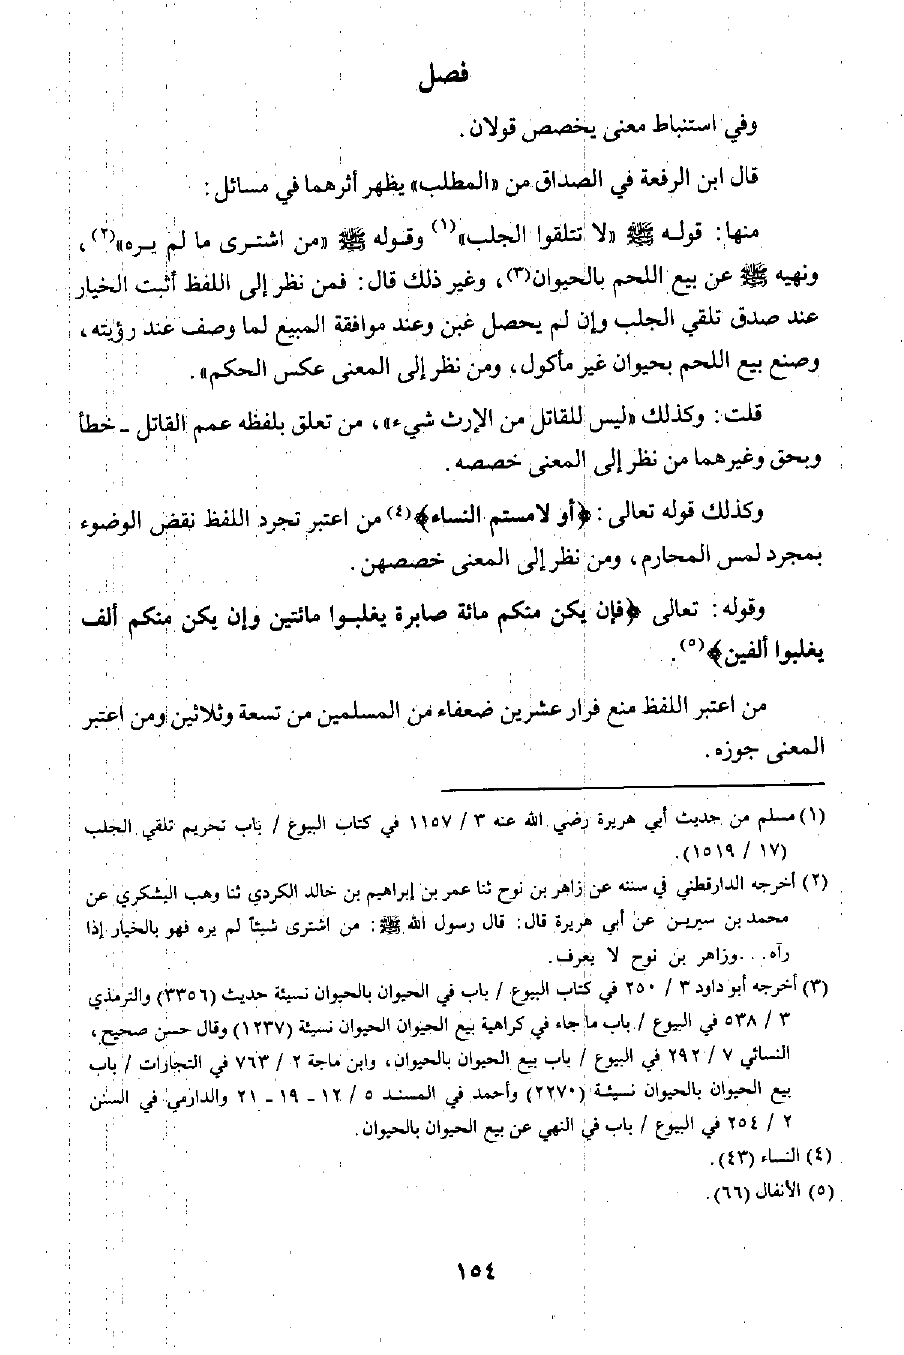 فصل
وفي استنباط معنى يخصص قولان.
قال ابن الرفعة في الصداق من «المطلب» يظهر أثرهما في مسائل:
منها: قوله ﷺ «لا تتلقوا الجلب»(١) وقوله ﷺ «من اشترى ما لم يره»(٢)،
ونهيه ﷺ عن بيع اللحم بالحيوان(٣)، وغير ذلك قال: فمن نظر إلى اللفظ أثبت الخيار
عند صدق تلقي الجلب وإن لم يحصل غبن وعند موافقة المبيع لما وصف عند رؤيته،
وصنع بيع اللحم بحيوان غير مأكول، ومن نظر إلى المعنى عكس الحكم».
قلت: وكذلك «ليس للقاتل من الإرث شيء»، من تعلق بلفظه عمم القاتل ـ خطأ
وبحق وغيرهما من نظر إلى المعنى خصصه.
وكذلك قوله تعالى: ﴿أو لامستم النساء﴾(٤) من اعتبر تجرد اللفظ نقض الوضوء
بمجرد لمس المحارم، ومن نظر إلى المعنى خصصهن.
وقوله: تعالى ﴿فإن يكن منكم مائة صابرة يغلبوا مائتين وإن يكن منكم ألف
يغلبوا ألفين﴾(٥).
من اعتبر اللفظ منع فرار عشرين ضعفاء من المسلمين من تسعة وثلاثين ومن اعتبر
المعنى جوزه.
(١) مسلم من حديث أبي هريرة رضي الله عنه ٣ / ١١٥٧ في كتاب البيوع / باب تحريم تلقي الجلب
(١٧ / ١٥١٩).
(٢) أخرجه الدارقطني في سننه عن زاهر بن نوح ثنا عمر بن إبراهيم بن خالد الكردي ثنا وهب اليشكري عن
محمد بن سيرين عن أبي هريرة قال: قال رسول الله ﷺ: من اشترى شيئاً لم يره فهو بالخيار إذا
رآه...وزاهر بن نوح لا يعرف.
(٣) أخرجه أبو داود ٣ / ٢٥٠ في كتاب البيوع / باب في الحيوان بالحيوان نسيئة حديث (٣٣٥٦) والترمذي
٣ / ٥٣٨ في البيوع / باب ما جاء في كراهية بيع الحيوان الحيوان نسيئة (١٢٣٧) وقال حسن صحيح،
النسائي ٧ / ٢٩٢ في البيوع / باب بيع الحيوان بالحيوان، وابن ماجة ٢ / ٧٦٣ في التجارات / باب
بيع الحيوان بالحيوان نسيئة (٢٢٧٠) وأحمد في المسند ٥ / ١٢ ـ ١٩ ـ ٢١ والدارمي في السنن
٢ / ٢٥٤ في البيوع / باب في النهي عن بيع الحيوان بالحيوان.
(٤) النساء (٤٣).
(٥) الأنفال (٦٦).
١٥٤